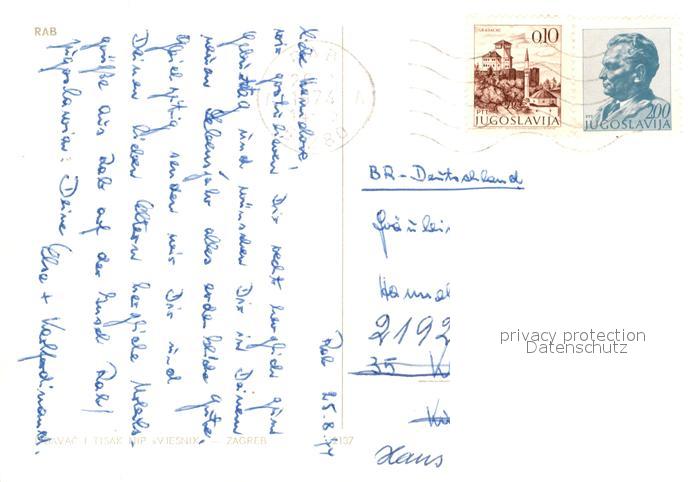 RAB
Rab 25.8.77
Liebe Hannelore!
wir gratulieren Dir recht herzlich zum
Geburtstag und wünschen Dir in Deinem
neuen Lebensjahr alles erdenkliche Gute.
Gleichzeitig senden wir Dir und
Deinen lieben Eltern herzliche Urlaubs-
grüße aus Rab auf der Insel Rab/
Jugoslawien: Deine Elsa + Karlferdinand.
0.10
GRADAČAC
PTT
JUGOSLAVIJA
2.00
PTT
JUGOSLAVIJA
BR-Deutschland
Fräulei
Hannel
2192
35 K
Haus
privacy protection
Datenschutz
TISAK NIP »VJESNIK« — ZAGREB